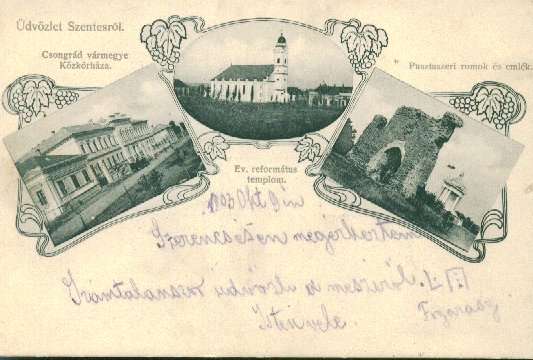 Üdvözlet Szentesről.
Csongrád vármegye
Közkórháza.
Pusztaszeri romok és emlék.
Ev. református
templom.
1903 Okt 9 én
Szerencsésen megérkeztem
Számtalanszor üdvözli a messziről.
Isten vele.